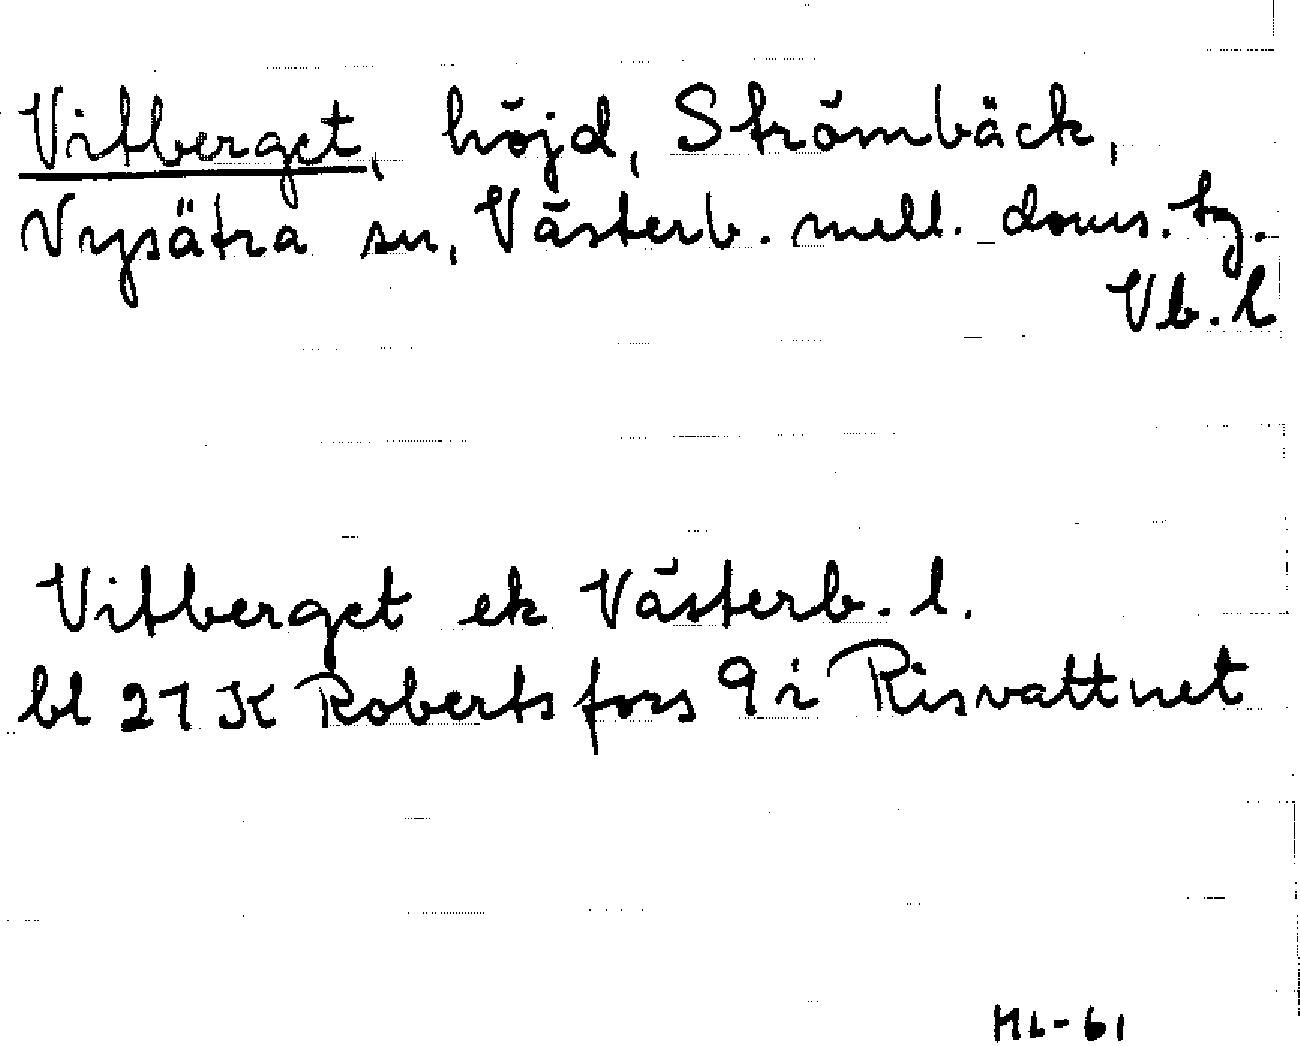 Vitberget, höjd, Strömbäck,
Nysätra sn, Västerb. mell. doms. tg.
Vb. l
Vitberget ek Västerb. l.
bl 21 K Robertsfors 9 i Risvattnet
ML-61